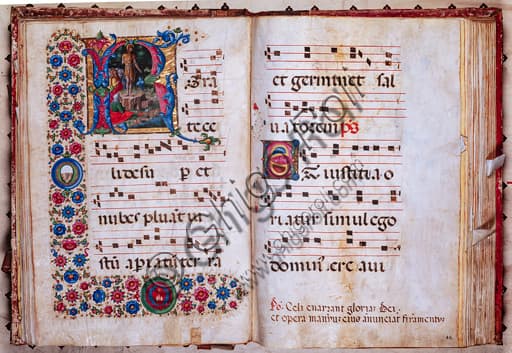 R ora
te ce
li desu p et
nubes pluāt iu
stū apiatur ter ra
et germinet sal
uatorem ps
Et iustitia o
riatur simul ego
domin' creaui
Ps. Celi enarrant gloriaz Dei,
et opera manuuz eius anunciat firamentuz